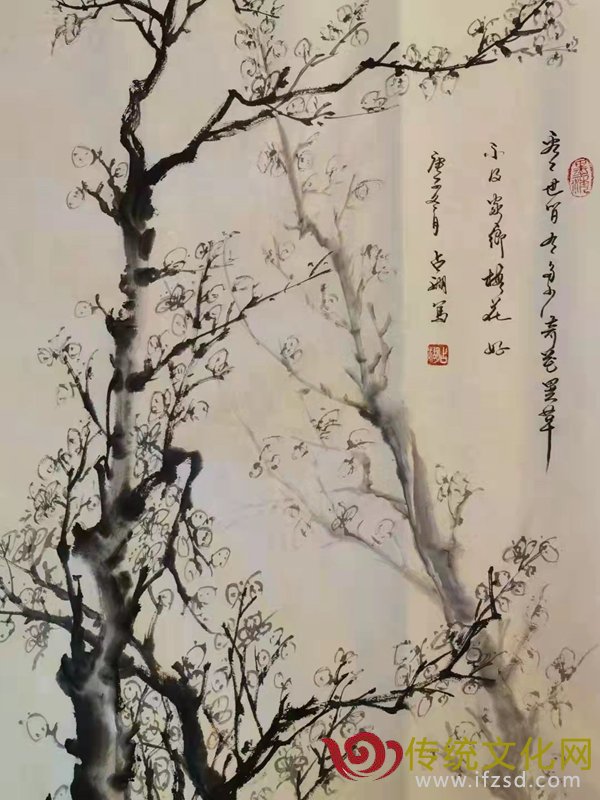 世间有多少奇花異草
不及家鄉梅花好
庚子冬月 占 写
传统文化网
www.ifzsd.com